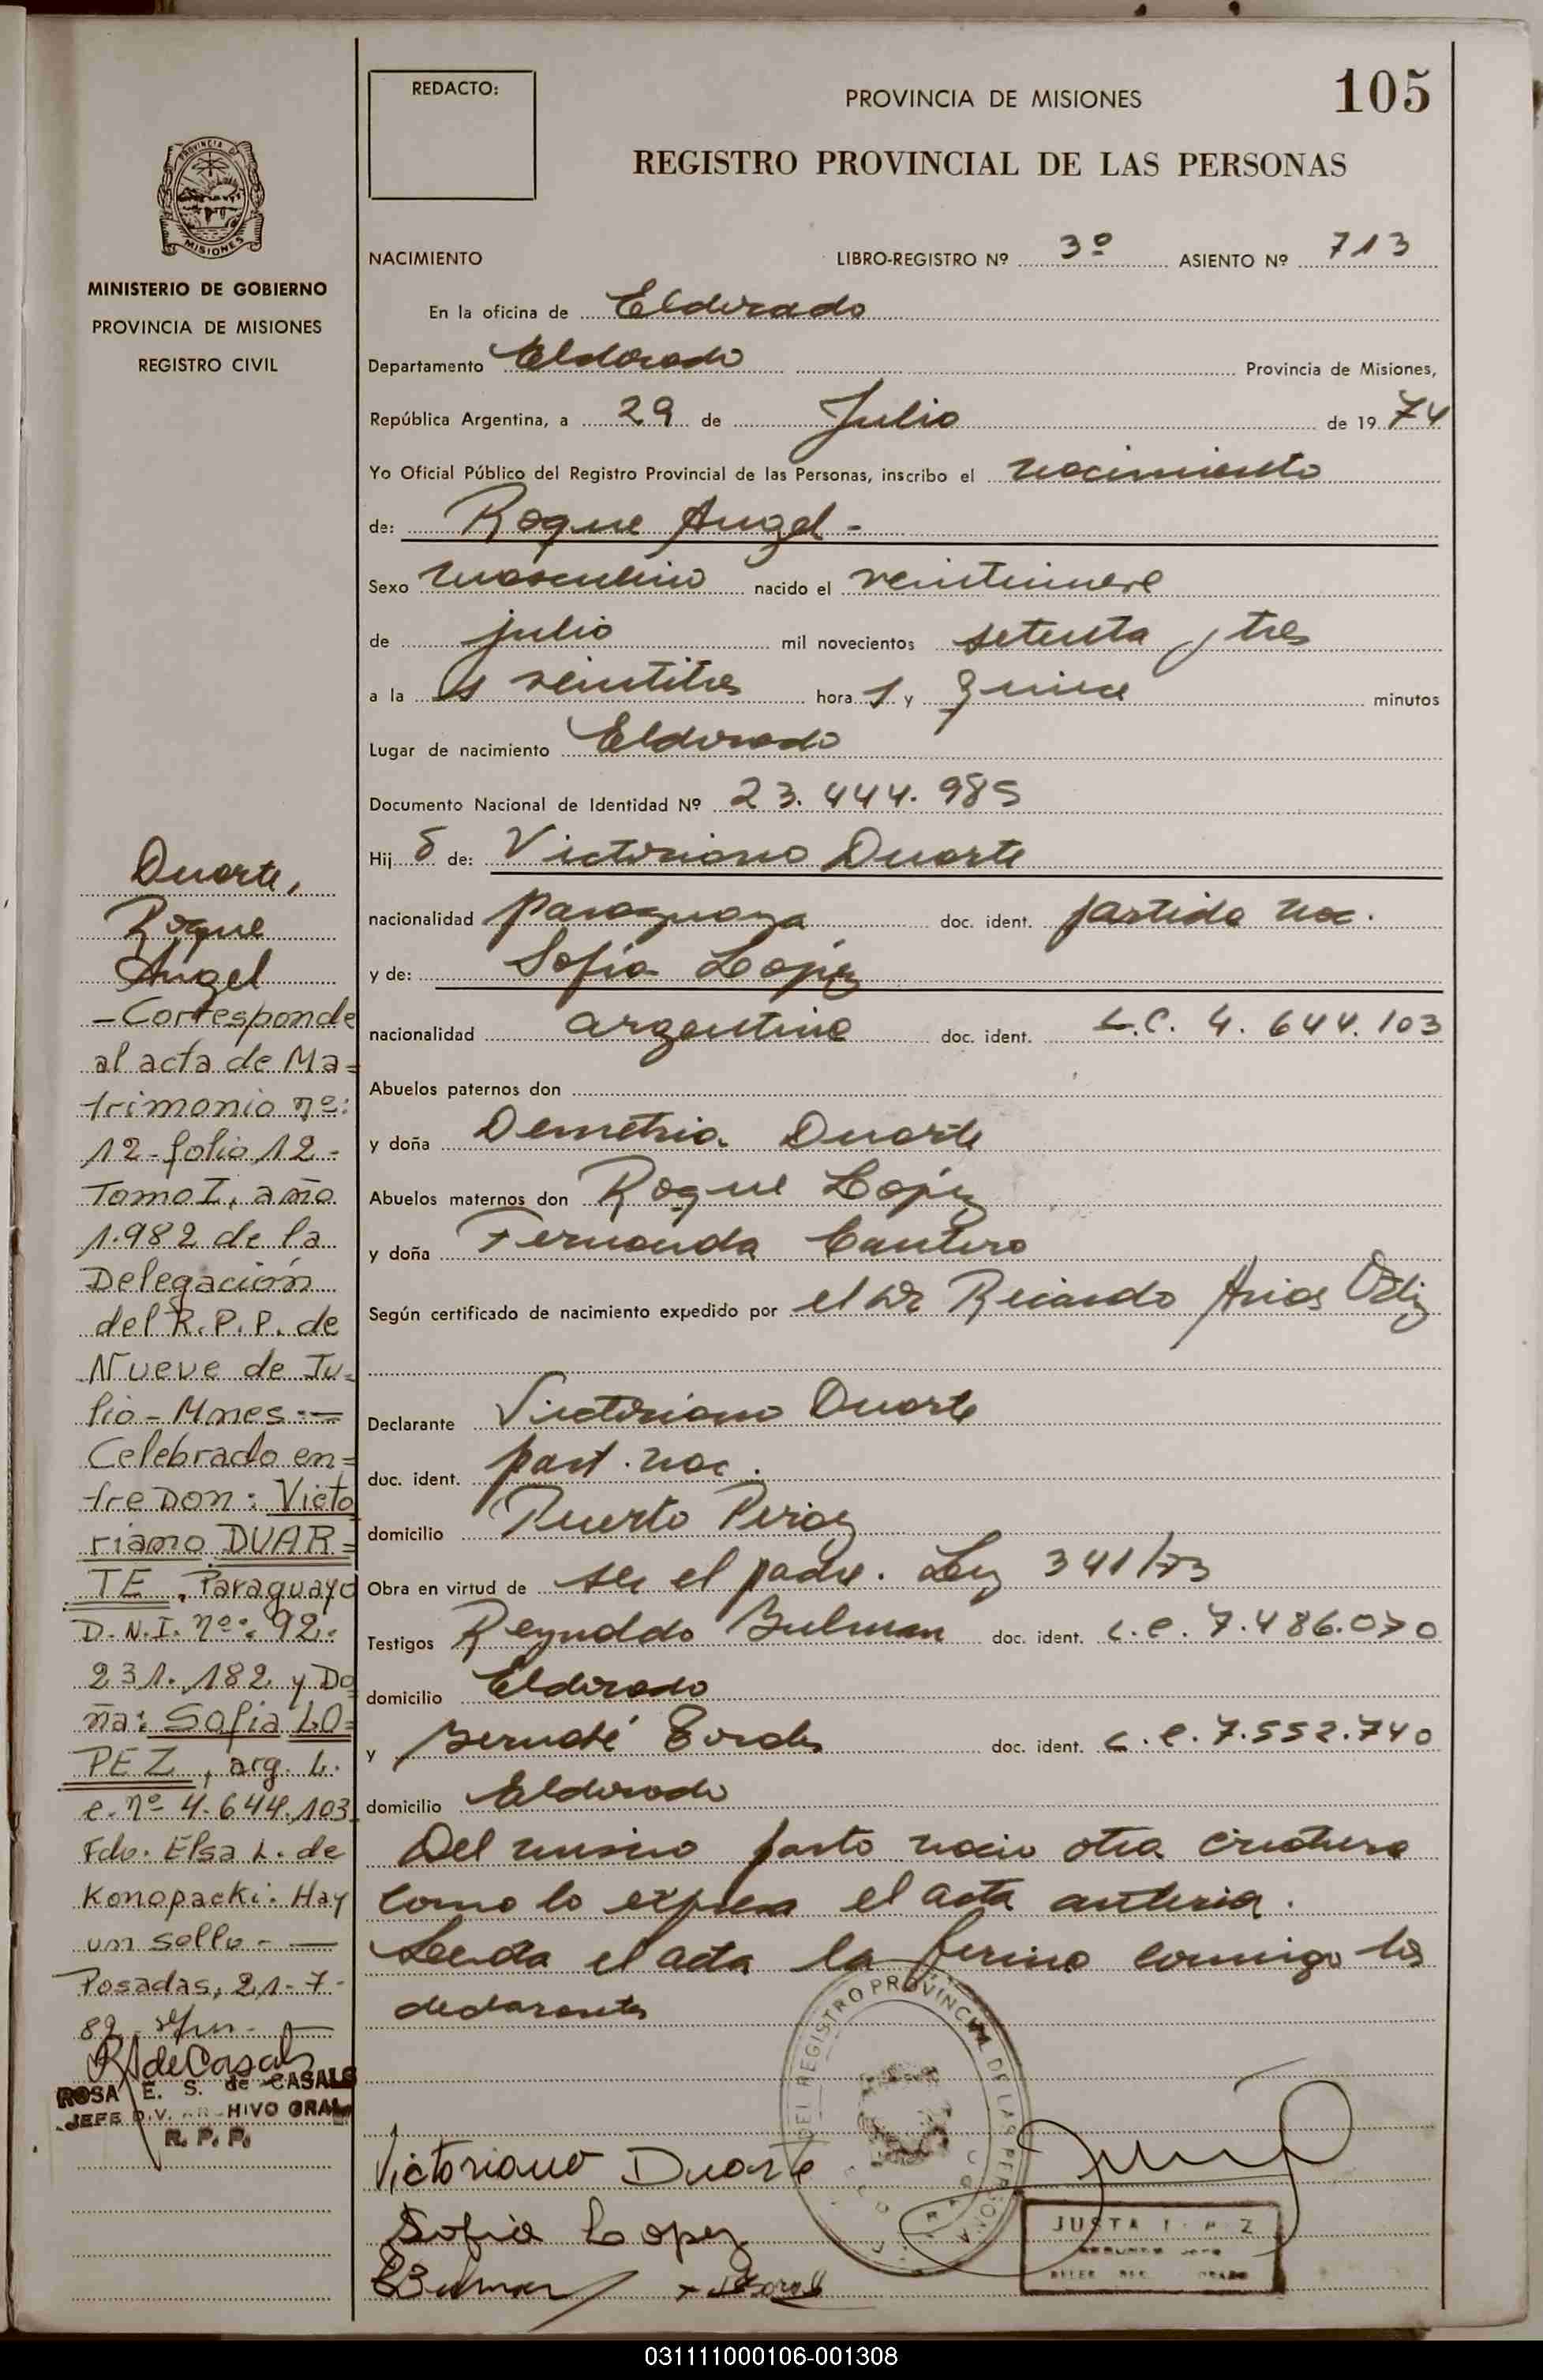 REDACTO:
PROVINCIA DE MISIONES
105
REGISTRO PROVINCIAL DE LAS PERSONAS
PROVINCIA DE
MISIONES
MINISTERIO DE GOBIERNO
PROVINCIA DE MISIONES
REGISTRO CIVIL
NACIMIENTO LIBRO-REGISTRO Nº 3º ASIENTO Nº 713
En la oficina de Eldorado
Departamento Eldorado Provincia de Misiones,
República Argentina, a 29 de Julio de 1974
Yo Oficial Público del Registro Provincial de las Personas, inscribo el nacimiento
de: Roque Angel -
Sexo masculino nacido el veintinueve
de julio mil novecientos setenta y tres
a la s veintitres hora s y quince minutos
Lugar de nacimiento Eldorado
Documento Nacional de Identidad Nº 23.444.985
Hij o de: Victoriano Duarte
nacionalidad paraguaya doc. ident. partida nac.
y de: Sofia Lopez
nacionalidad argentina doc. ident. L.C. 4.644.103
Abuelos paternos don
y doña Demetria Duarte
Abuelos maternos don Roque Lopez
y doña Fernanda Cantero
Según certificado de nacimiento expedido por el Dr Ricardo Arias
Declarante Victoriano Duarte
doc. ident. part. nac.
domicilio Puerto Piray
Obra en virtud de ser el padre. Ley 341/73
Testigos Reynaldo Bulman doc. ident. L.E. 7.486.070
domicilio Eldorado
y doc. ident. L.E. 7.552.740
domicilio Eldorado
Del mismo parto nacio otra criatura
como lo expresa el acta anterior.
Leida el acta la firma conmigo los
declarantes
Victoriano Duarte
Sofia Lopez
DEL REGISTRO PROVINCIAL DE LAS PERSONAS
JUSTA
Duarte,
Roque
Angel
- Corresponde
al acta de Ma=
trimonio nº:
12 - folio 12 -
Tomo I, año
1.982 de la
Delegación
del R.P.P. de
Nueve de Ju=
lio - Mnes -—
Celebrado en=
tre Don: Victo
riano DUAR=
TE, Paraguayo
D.N.I. nº: 92.
231.182 y Do
ña: Sofia LO=
PEZ, arg. L.
C. nº 4.644.103
Fdo. Elsa L. de
Konopacki. Hay
un sello - —
Posadas, 21-7-
82 -
RSdeCasals
ROSA E. S. de CASALS
JEFE DIV. ARCHIVO GRAL
R. P. P.
031111000106-001308